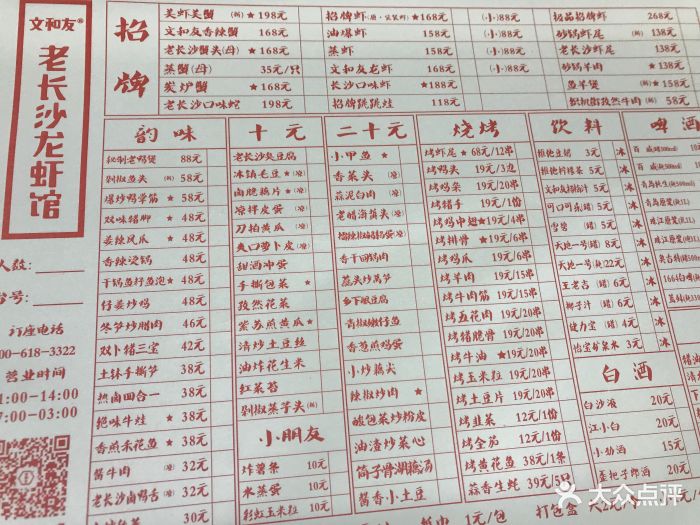 文和友®
老长沙龙虾馆
人数:
台号:
订座电话
00-618-3322
营业时间
11:00-14:00
17:00-03:00
招牌
美蛙美蟹 ★198元
文和友香辣蟹 168元
老长沙蟹头(母)★168元
蒸蟹(母) 35元/只
炭炉蟹 ★168元
老长沙口味蛇 198元
★168元 (小)88元
油爆虾 158元 (小)88元
蒸虾 158元 (小)88元
文和友龙虾 168元 (小)88元
长沙口味虾 ★188元
招牌跳跳蛙 118元
极品招牌虾 268元
砂锅虾尾 138元
老长沙虾尾 138元
砂锅羊肉 ★138元
鱼羊煲 ★158元
孜然牛肉 58元
韵味
秘制老鸭煲 88元
剁椒鱼头 58元
爆炒鸭掌筋 ★58元
双味猪脚 ★48元
姜辣凤爪 ★48元
香辣烫锅 48元
干锅鱼籽鱼泡 ★48元
仔姜炒鸡 48元
冬笋炒腊肉 46元
双卜猪三宝 42元
土钵手撕笋 38元
热卤四合一 38元
绝味牛蛙 ★38元
香煎禾花鱼 ★38元
酱牛肉 (凉) 32元
老长沙卤鸭舌 (凉) 32元
30元
十元
老长沙臭豆腐
冰镇毛豆 ★(凉)
卤脆藕片 ★(凉)
凉拌皮蛋 (凉)
刀拍黄瓜 (凉)
爽口萝卜皮 (凉)
甜酒冲蛋
手撕包菜 ★
孜然花菜
紫苏煎黄瓜 ★
清炒土豆丝
油炸花生米
红菜苔
剁椒蒸芋头
小朋友
炸薯条 10元
水蒸蛋 10元
彩虹玉米粒 10元
二十元
小甲鱼 ★
香菜头 (凉)
蒜泥白肉 (凉)
老醋海蜇头 (凉)
香干回锅肉
蒜头炒莴笋
乡下嫩豆腐
青椒嫩仔鱼
香葱煎鸡蛋
小炒藕尖
辣椒炒肉 ★
酸包菜炒粉皮
油渣炒菜心
筒子骨湖藕汤
酱香小土豆
烧烤
烤虾尾 ★68元/12串
烤鸭头 19元/3边
烤鸡柔 19元/5串
烤猪手 19元/1份
烤鸡中翅 ★19元/4串
烤排骨 ★19元/6串
烤鸡爪 19元/6串
烤羊肉 19元/15串
烤牛肉筋 19元/15串
烤五花肉 19元/20串
烤猪脆骨 19元/20串
烤牛油 ★19元/20串
烤玉米粒 19元/20串
烤土豆片 19元/20串
烤韭菜 12元/1份
烤金菇 12元/1份
烤黄花鱼 38元/1条
蒜香生蚝 39元/5
饮料
维他豆奶 3元 冰
维他柠檬茶 5元 冰
5元 冰
可口可乐(罐) 5元 冰
雪碧 (罐) 5元 冰
天地一号(罐) 8元 冰
天地一号(瓶)22元 冰
王老吉 (罐) 6元 冰
椰子汁 (罐) 6元 冰
健力宝 (罐) 4元 冰
怡宝矿泉水 3元 冰
白酒
白沙液 20元
江小白 20元
小劲酒 15元
歪把子郎酒 20元
啤酒
1元/包
打包盒
大众点评